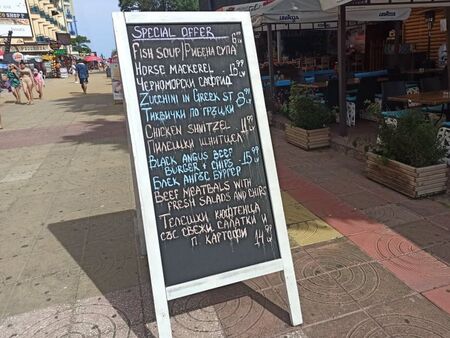 SPECIAL OFFER
FISH SOUP | РИБЕНА СУПА 6.99
HORSE MACKEREL 13.99
ЧЕРНОМОРСКИ САФРИД
ZUCCHINI IN GREEK ST 8.99
ТИКВИЧКИ ПО ГРЪЦКИ
CHICKEN SHNITZEL 11.99
ПИЛЕШКИ ШНИТЦЕЛ
BLACK ANGUS BEEF
BURGER + CHIPS 15.99
БЛЕК АНГЪС БУРГЕР
BEEF MEATBALS WITH
FRESH SALADS AND CHIPS
ТЕЛЕШКИ КЮФТЕНЦА
СЪС СВЕЖИ САЛАТКИ И
П. КАРТОФИ 14.99